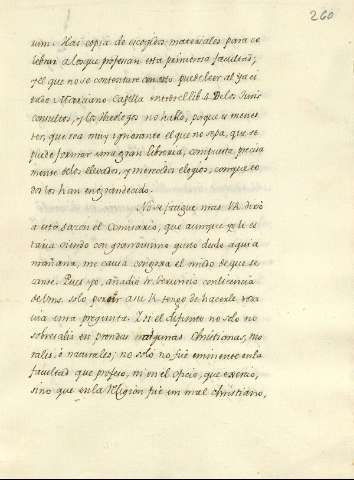 260
um. Hai copia de escogidos materiales para ce
lebrar a los que profesan esta primorosa facultad;
y el que no se contentare con esto puede leer al ya ci
tado Marciano Capella en todo el lib. 4. De los Juris
consultos, y los Theologos no hablo, porque es menes
ter, que sea muy ignorante el que no sepa, que se
puede formar una gran libreria, compuesta precisa
mente de los elevados, y merecidos elogios, con que to
dos los han engrandecido.
No se fatigue mas V.R. dixo
a esta sazon el Comisario, que aunque yo le es
taria oiendo con grandissimo gusto desde aqui a
mañana, me causa congoxa el miedo de que se
canse. Pues yo, añadió
de Vms. solo por oir a su R. tengo de hacerle toda
via otra pregunta. Y si el difunto no solo no
sobresalió en prendas algunas Christianas, mo
rales, ó naturales; no solo no fue eminente en la
facultad que profesó, ni en el oficio, que exerció,
sino que en la Religion fue un mal christiano,